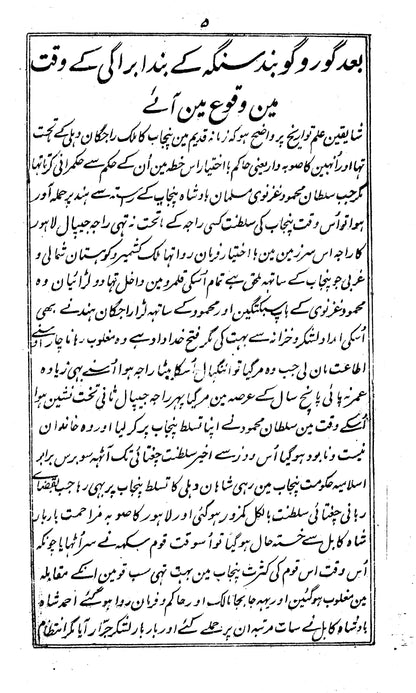 ۵
بعد گورو گوبند سنگہ کے بندا بیراگی کے وقت
مین وقوع مین آئے
شایقین علم تواریخ پر واضح ہو کہ زمانہ قدیم مین پنجاب کا ملک راجگان دہلی کے تحت
تہا اور اُنہین کا صوبہ دار یعنی حاکم با اختیار اس خطہ مین اُن کے حکم سے حکمرانی کرتا تہا
مگر جب سلطان محمود غزنوی مسلمان بادشاہ پنجاب کے رستہ سے ہند پر حملہ آور
ہوا تو اُس وقت پنجاب کی سلطنت کسی راجہ کے ماتحت نہ تہی راجہ جیپال لاہور
کا راجہ اس سرزمین مین با اختیار فرمان روا تہا ملک کشمیر و کوہستان شمالی و
غربی جو پنجاب کے ساتھ ملحق ہے تمام اُسکی قلمرو مین داخل تہا دو لڑائیان وہ
محمود غزنوی کے باپ سبکتگین اور محمود کے ساتھ لڑا راجگان ہند نے بھی
اُسکی امداد لشکر و خزانہ سے بہت کی مگر فتح خداداد ہے وہ مغلوب رہا ناچار اُسنے
اطاعت مان لی جب وہ مر گیا تو انندپال اُسکا بیٹا راجہ ہوا اُسنے بہی زیادہ
عمر نہ پائی پانچ سال کے عرصہ مین مر گیا پہر راجہ جیپال ثانی تخت نشین ہوا
اُسکے وقت مین سلطان محمود نے اپنا تسلط پنجاب پر کر لیا اور وہ خاندان
نیست و نابود ہو گیا اُس روز سے اخیر سلطنت چغتائی تک آٹھ سو برس برابر
اسلامیہ حکومت پنجاب مین رہی شاہان دہلی کا تسلط پنجاب پر بہی رہا جب بقضاے
ربانی چغتائی سلطنت بالکل کمزور ہو گئی اور لاہور کا صوبہ مزاحمت بار بار
شاہ کابل سے خستہ حال ہو گیا تو اُسوقت قوم سکہہ نے سر اُٹھایا چونکہ
اُس وقت اس قوم کی کثرت پنجاب مین بہت تہی سب قومین انکے مقابلہ
مین مغلوب ہو گئین اور یہہ جابجا مالک اور حاکم و فرمان روا ہو گئے احمد شاہ
بادشاہ کابل نے سات مرتبہ ان پر حملے کئے اور بار بار لشکر جرّار آیا مگر انتظام